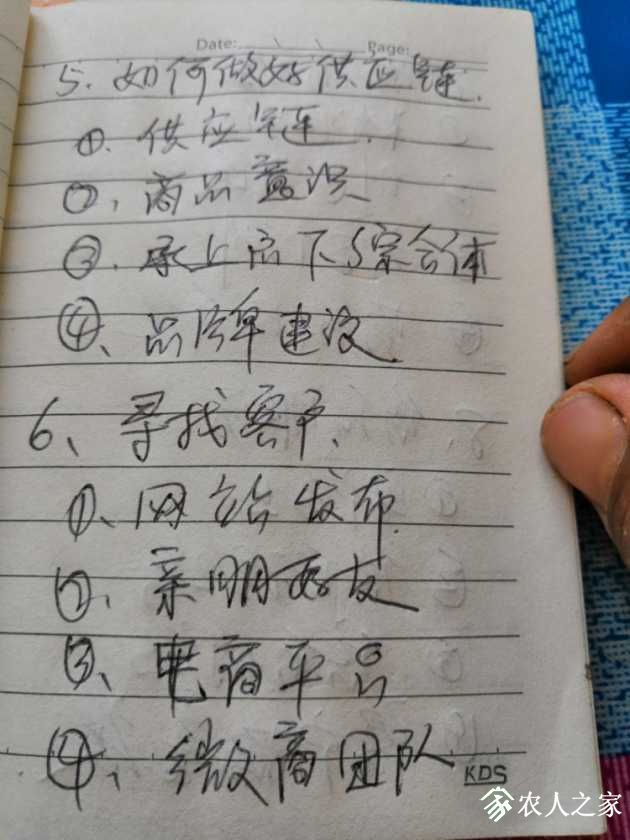 Date: Page:
5. 如何做好供应链.
①. 供应链.
②、商品意识
③. 承上启下与综合体
④、品牌建设.
6、寻找客户.
①、网站发布
②、亲朋好友
③、电商平台
④、微商团队
KDS
农人之家